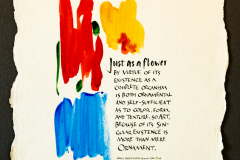 Just as a flower
BY VIRTUE OF ITS
EXISTENCE AS A
COMPLETE ORGANISM
IS BOTH ORNAMENTAL
AND SELF-SUFFICIENT
AS TO COLOR, FORM,
AND TEXTURE, SO ART,
BECAUSE OF ITS SIN-
GULAR EXISTENCE IS
MORE THAN MERE
ORNAMENT.